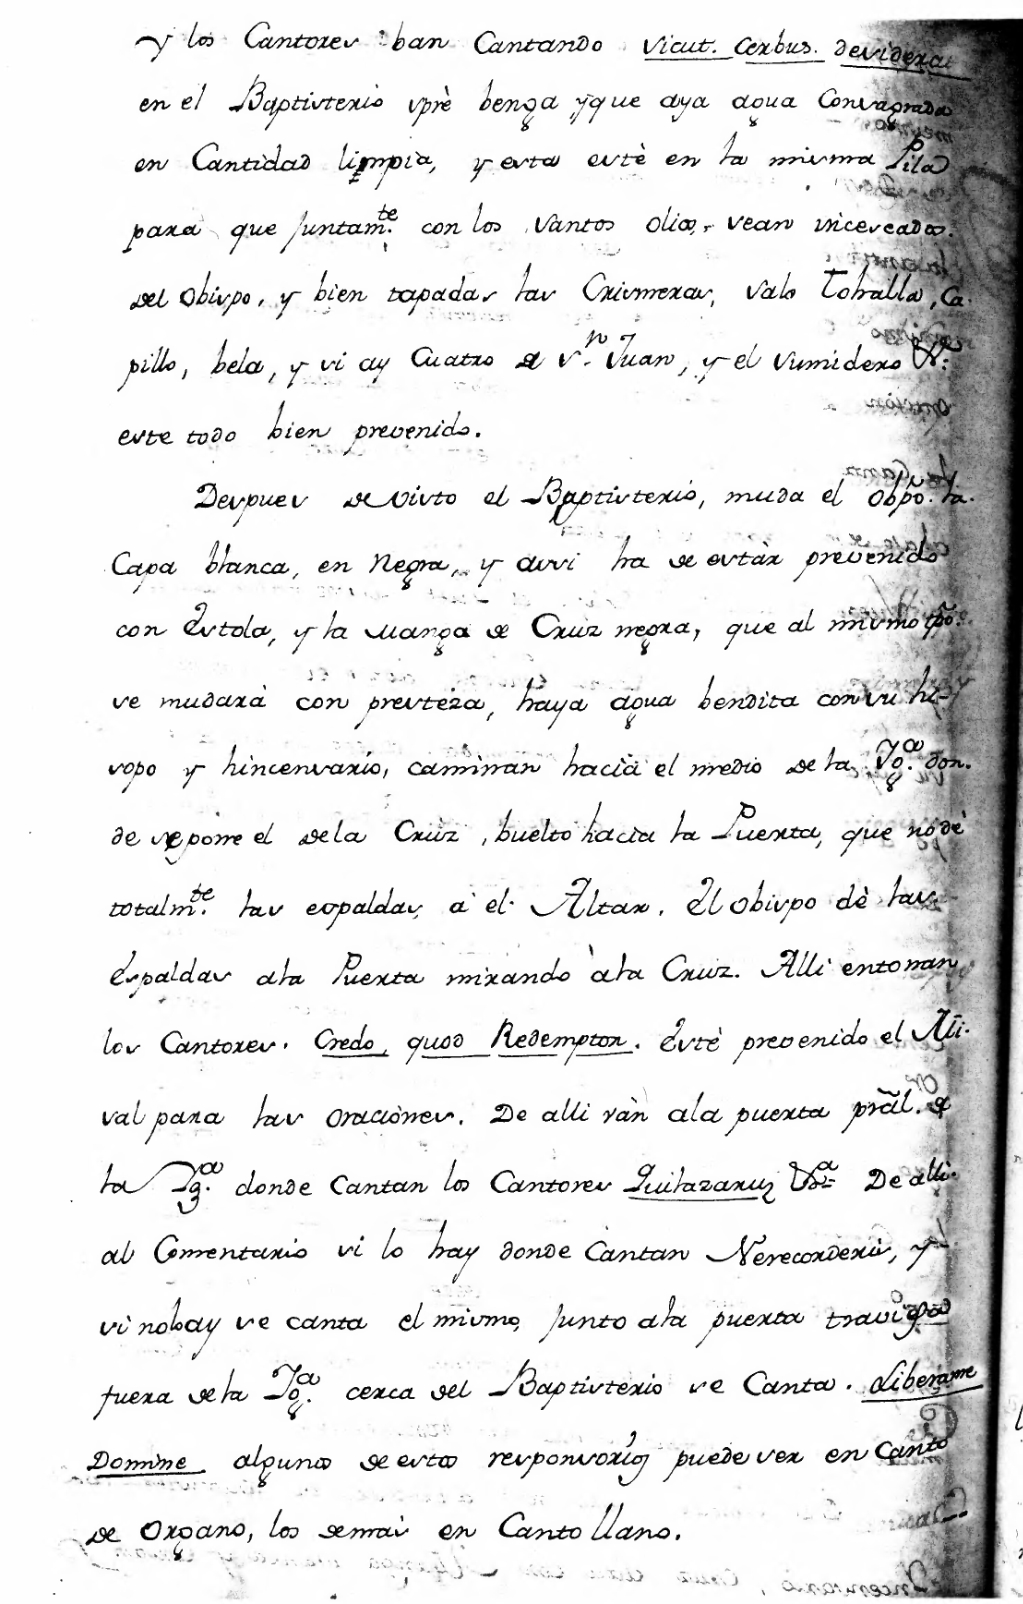 y los Cantores ban Cantando sicut. Cerbus. desidera
en el Baptisterio sprè benga, y que aya agua Consagrada
en Cantidad limpia, y esta estè en la misma Pila
para que juntam.te con los santos olios, sean incensados.
del obispo, y bien tapadas las Crismeras, salo tohalla, Ca-
pillo, bela, y si ay Cuatro de S.n Juan, y el sumidero &.
este todo bien prevenido.
Despues de visto el Baptisterio, muda el obpo. la
Capa blanca, en negra, y assi ha de estàr prevenido
con Estola, y la manga de Cruz negra, que al mismo tpõ.
se mudarà con presteza, haya agua bendita con su hi-
sopo y hincensario, caminan hacia el medio de la Yg.a don-
de se pone el dela Crùz, buelto hacia la Puerta, que no dè
totalm.te las espaldas, à el Altar. El obispo dè las
Espaldas ala Puerta mirando àla Cruz. Alli entonan
los Cantores. Credo, quod Redemptor. Estè prevenido el Mi-
sal para las oraciònes. De alli vàn ala puerta prãl. de
la Yg.a donde Cantan los Cantores Quilazaruz &a De alli
al Comentario si lo hay donde Cantan Nerecorderis, y
si nohay se canta el mismo, junto ala puerta traviesa
fuera dela Yg.a cerca del Baptisterio se Canta. Liberame
Domine algunos de estos responsorios puede ser en Canto
de Organo, los demàs en Canto llano.